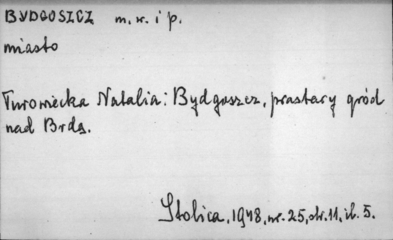 BYDGOSZCZ m. w. i p.
miasto
Turowiecka Natalia: Bydgoszcz, prastary gród
nad Brdą.
Stolica, 1948, nr. 25, str. 11, il. 5.